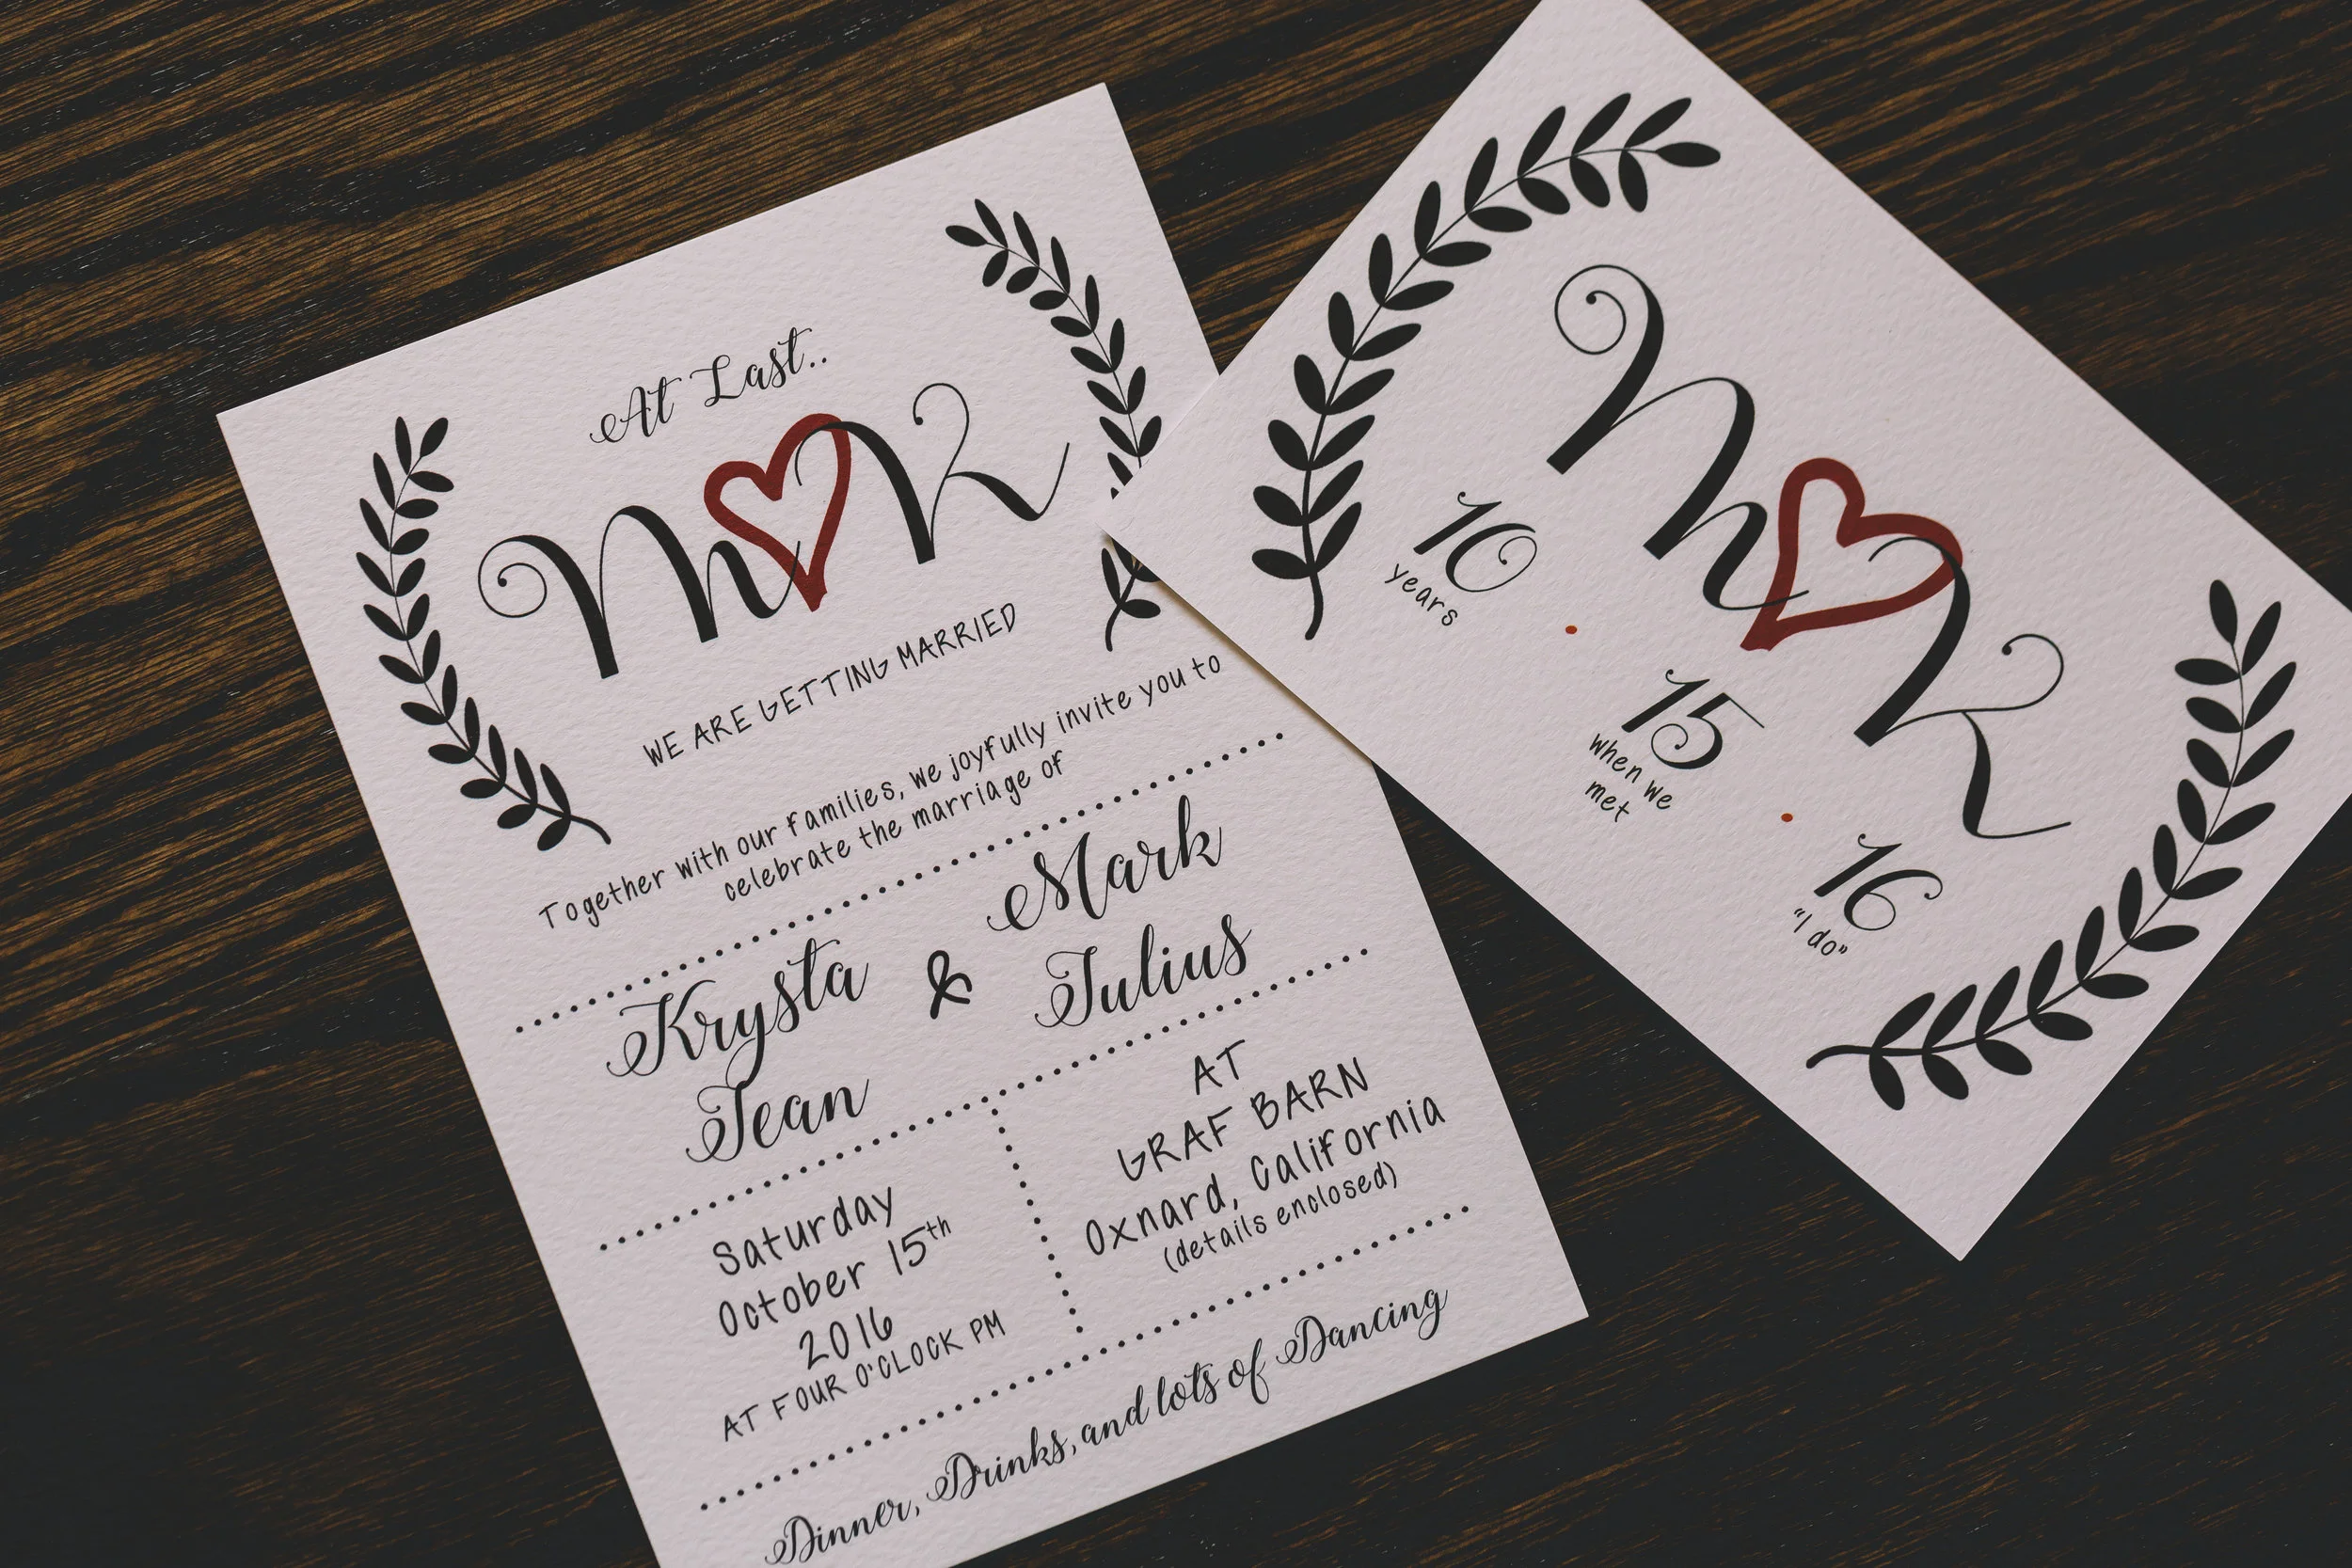 At Last..
M K
WE ARE GETTING MARRIED
Together with our families, we joyfully invite you to
celebrate the marriage of
Krysta
Jean
&
Mark
Julius
Saturday
October 15th
2016
AT FOUR O'CLOCK PM
AT
GRAF BARN
Oxnard, California
(details enclosed)
Dinner, Drinks, and lots of Dancing
M K
10
years
15
when we
met
16
"I do"